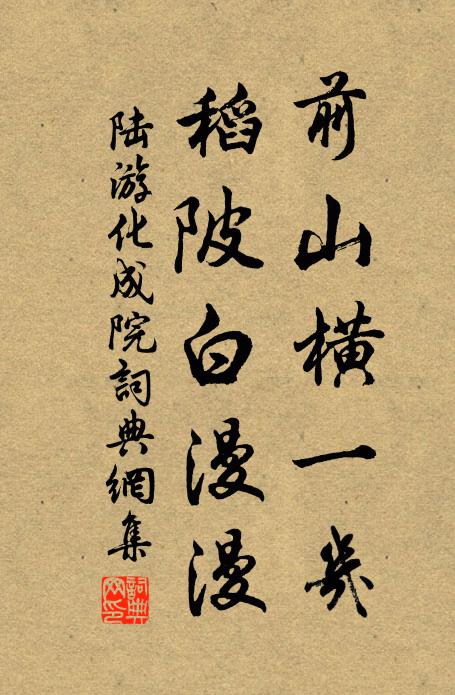 前山橫一幾
稻陂白漫漫
陆游化成院詞典網集
詞典网印